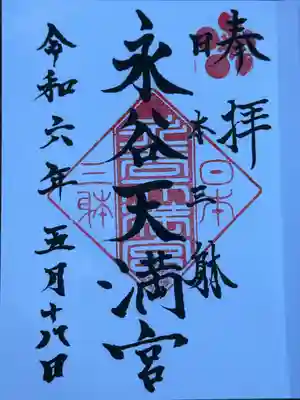 奉拝
日本三躰
永谷天満宮
令和六年五月十八日
日本
三躰